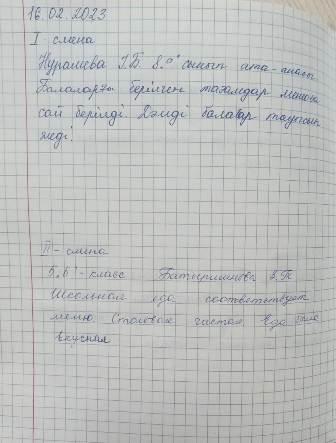 16.02.2023
I смена
Нурашева Г.Б 8."а" сынып ата-анасы
Балаларға берілген тағамдар менюге
сай берілді. Дәмді балалар тауысып
жеді!
II-смена
5 "Б"-класс
Школьная еда соответствует
меню Столовая чистая, Еда
вкусная